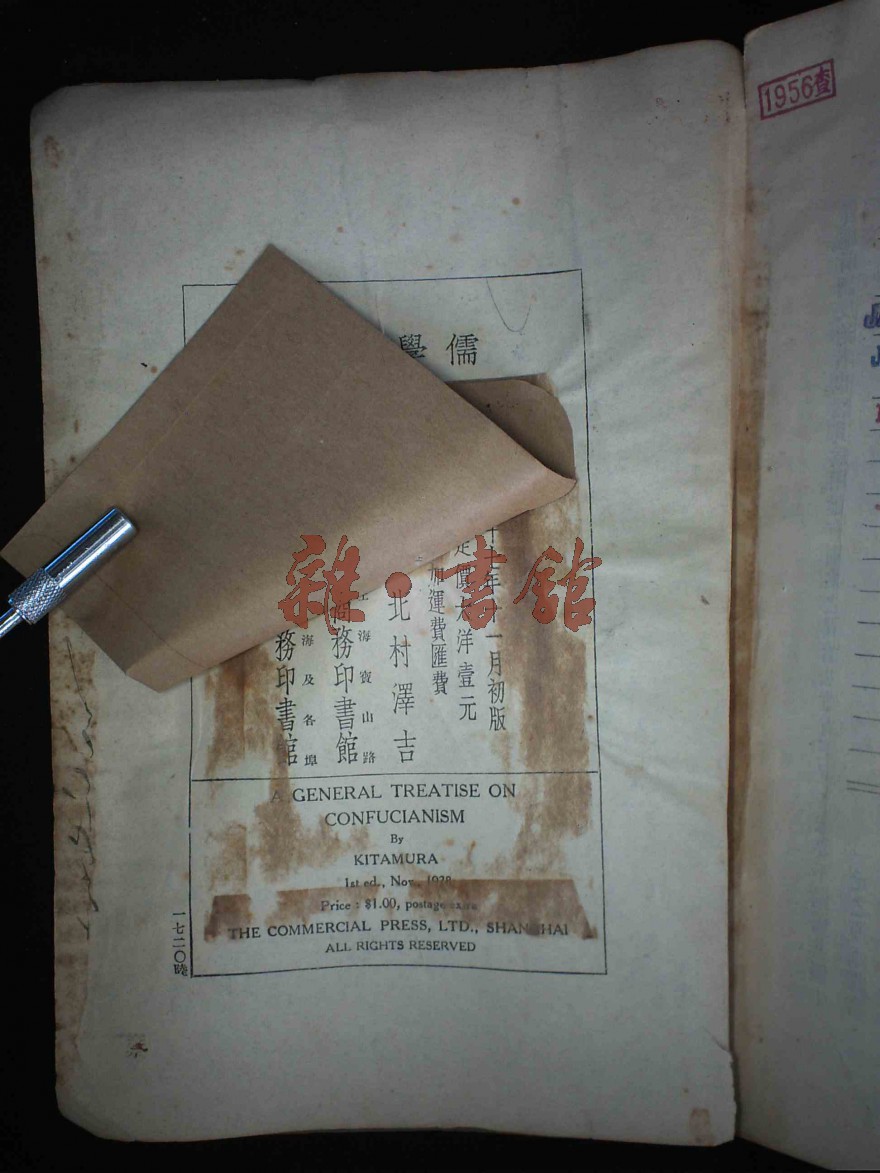 1956查
儒學
十七年十一月初版
定價大洋壹元
加運費匯費
北村澤吉
上海寶山路
商務印書館
海及各埠
務印書館
A GENERAL TREATISE ON
CONFUCIANISM
By
KITAMURA
1st ed., Nov., 1928
Price : $1.00, postage extra
THE COMMERCIAL PRESS, LTD., SHANGHAI
ALL RIGHTS RESERVED
一七二〇
雜·書館